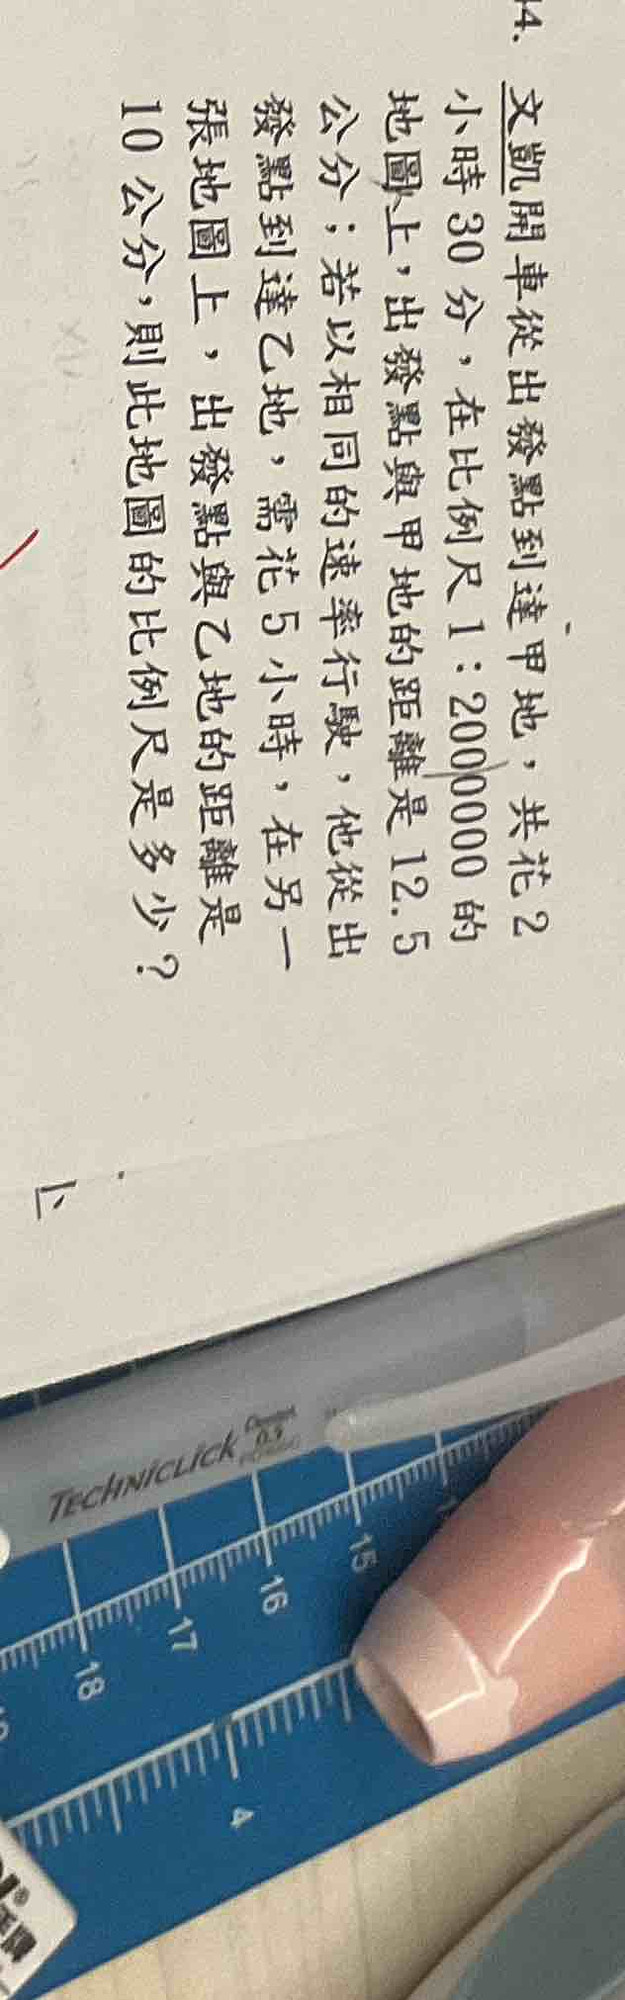 14. 文凱開車從出發點到達甲地，共花2
小時30分，在比例尺1：2000000的
地圖上，出發點與甲地的距離是12.5
公分；若以相同的速率行駛，他從出
發點到達乙地，需花5小時，在另一
張地圖上，出發點與乙地的距離是
10公分，則此地圖的比例尺是多少？
TECHNICLICK
15
16
17
18
4